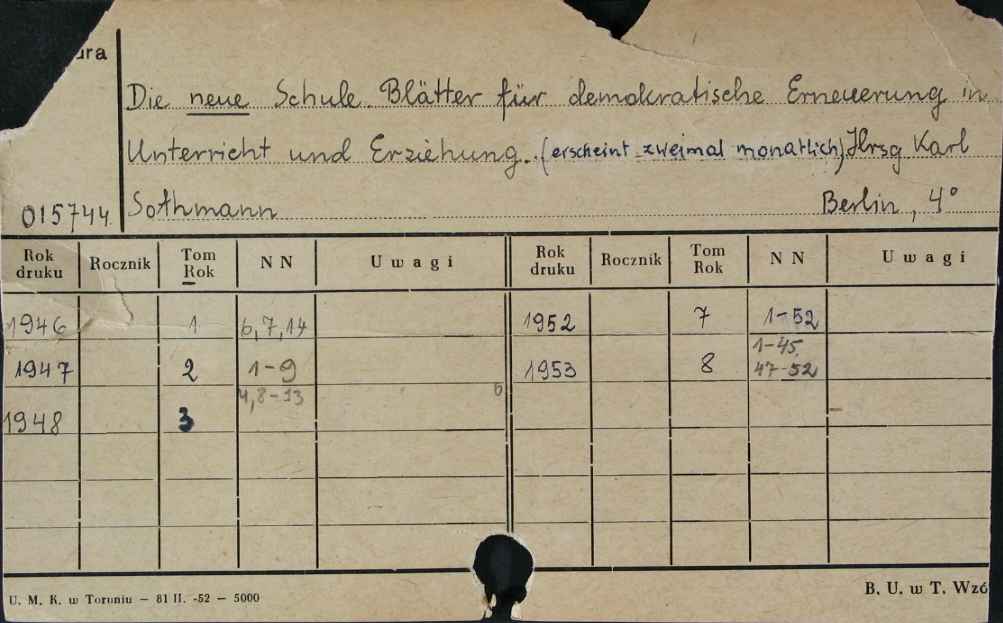 ura
Die neue Schule. Blätter für demokratische Erneuerung in
Unterricht und Erziehung. (erscheint zweimal monatlich) Hrsg Karl
015744 Sothmann Berlin, 4°
Rok druku Rocznik Tom Rok N N Uwagi Rok druku Rocznik Tom Rok N N Uwagi
1946 1 6,7,14 1952 7 1-52
1947 2 1-9 1953 8 1-45, 47-52
1948 3 4,8-13
U. M. K. w Toruniu — 81 II. -52 — 5000 B. U. w T. Wzó